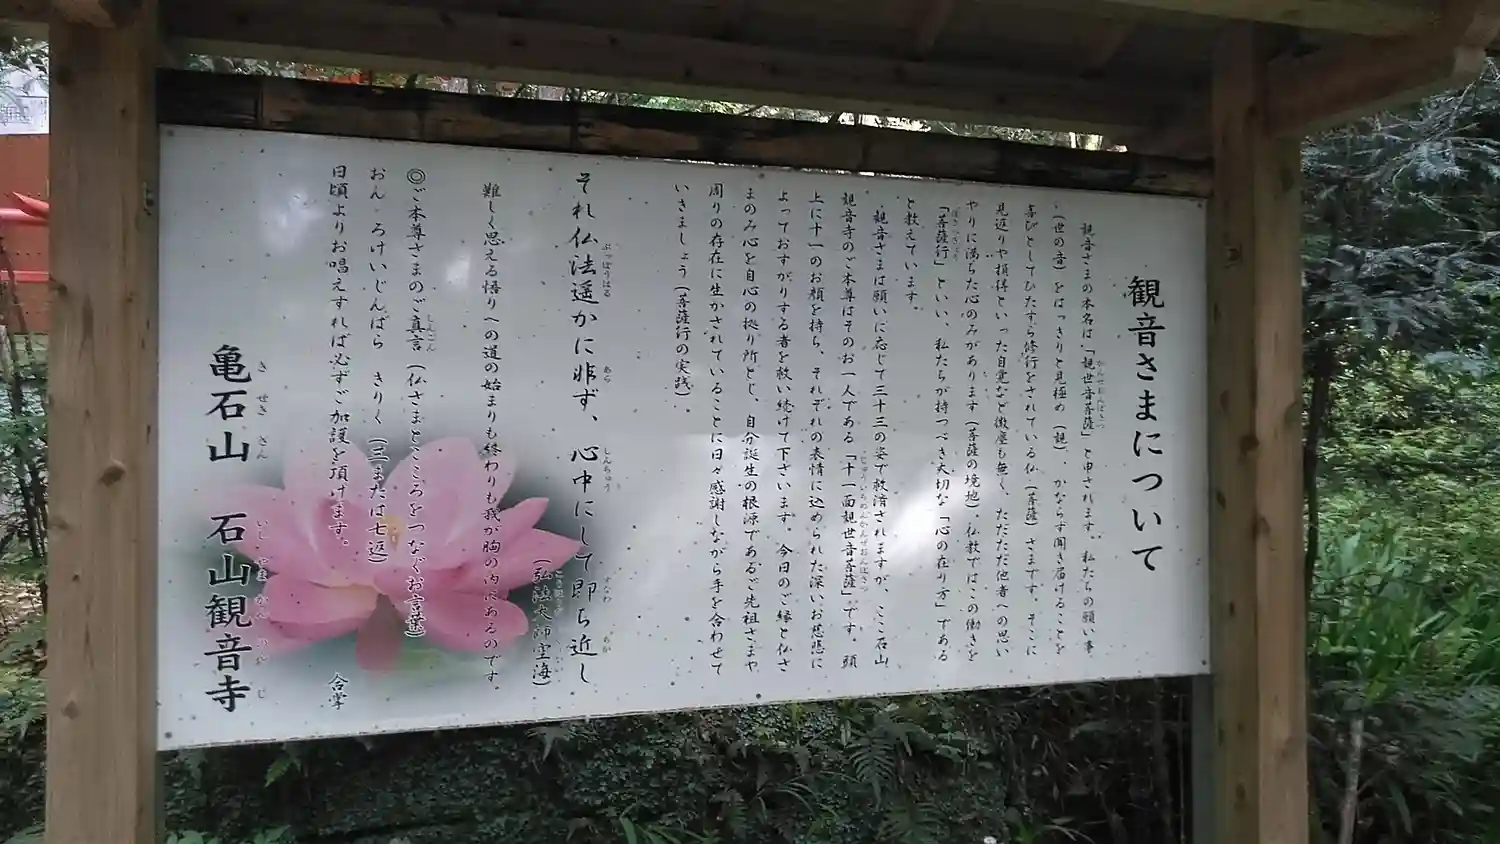 観音さまについて
観音さまの本名は「観世音菩薩」と申されます。私たちの願い事
(世の音)をはっきりと見極め(観)、かならず聞き届けることを
喜びとしてひたすら修行をされている仏(菩薩)さまです。そこに
見返りや損得といった自覚など微塵も無く、ただただ他者への思い
やりに満ちた心のみがあります(菩薩の境地)仏教ではこの働きを
「菩薩行」といい、私たちが持つべき大切な「心の在り方」である
と教えています。
観音さまは願いに応じて三十三の姿で救済されますが、ここ石山
観音寺のご本尊はそのお一人である「十一面観世音菩薩」です。頭
上に十一のお顔を持ち、それぞれの表情に込められた深いお慈悲に
よっておすがりする者を救い続けて下さいます。今日のご縁と仏さ
まのみ心を自心の拠り所とし、自分誕生の根源であるご先祖さまや
周りの存在に生かされていることに日々感謝しながら手を合わせて
いきましょう(菩薩行の実践)
それ仏法遥かに非ず、心中にして即ち近し
(弘法大師空海)
難しく思える悟りへの道の始まりも終わりも我が胸の内にあるのです。
◎ご本尊さまのご真言(仏さまとこころをつなぐお言葉)
おん ろけいじんばら きりく(三または七返)
日頃よりお唱えすれば必ずご加護を頂けます。
合掌
亀石山 石山観音寺